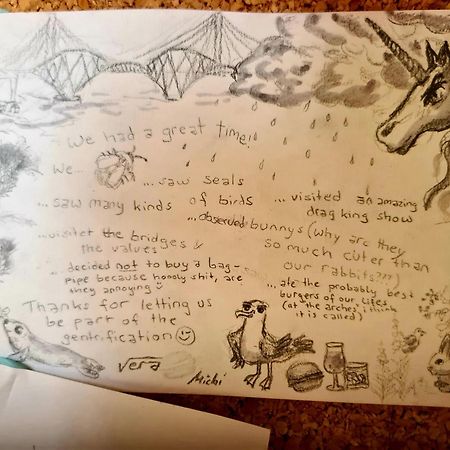 We had a great time!
We...
...saw seals
...saw many kinds of birds
...visited an amazing
drag king show
...observed bunnys (why are they
so much cuter than
our rabbits???)
...visitet the bridges
the values
...decided not to buy a bag-
pipe because honoly shit, are
they annoying
...ate the probably best
burgers of our lifes
(at the arches, i think
it is called)
Thanks for letting us
be part of the
gentrification
Vera
Michi